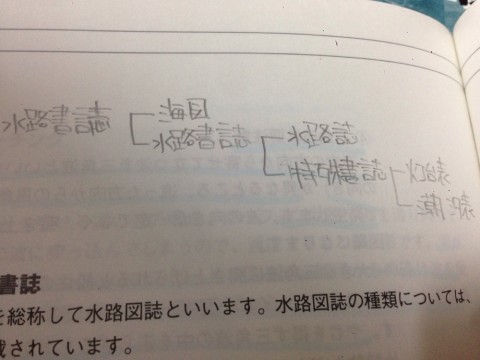 海図
水路書誌 水路書誌 水路誌
特殊書誌 灯台表
潮汐表
書誌
を総称して水路図誌といいます。水路図誌の種類については、
載されています。